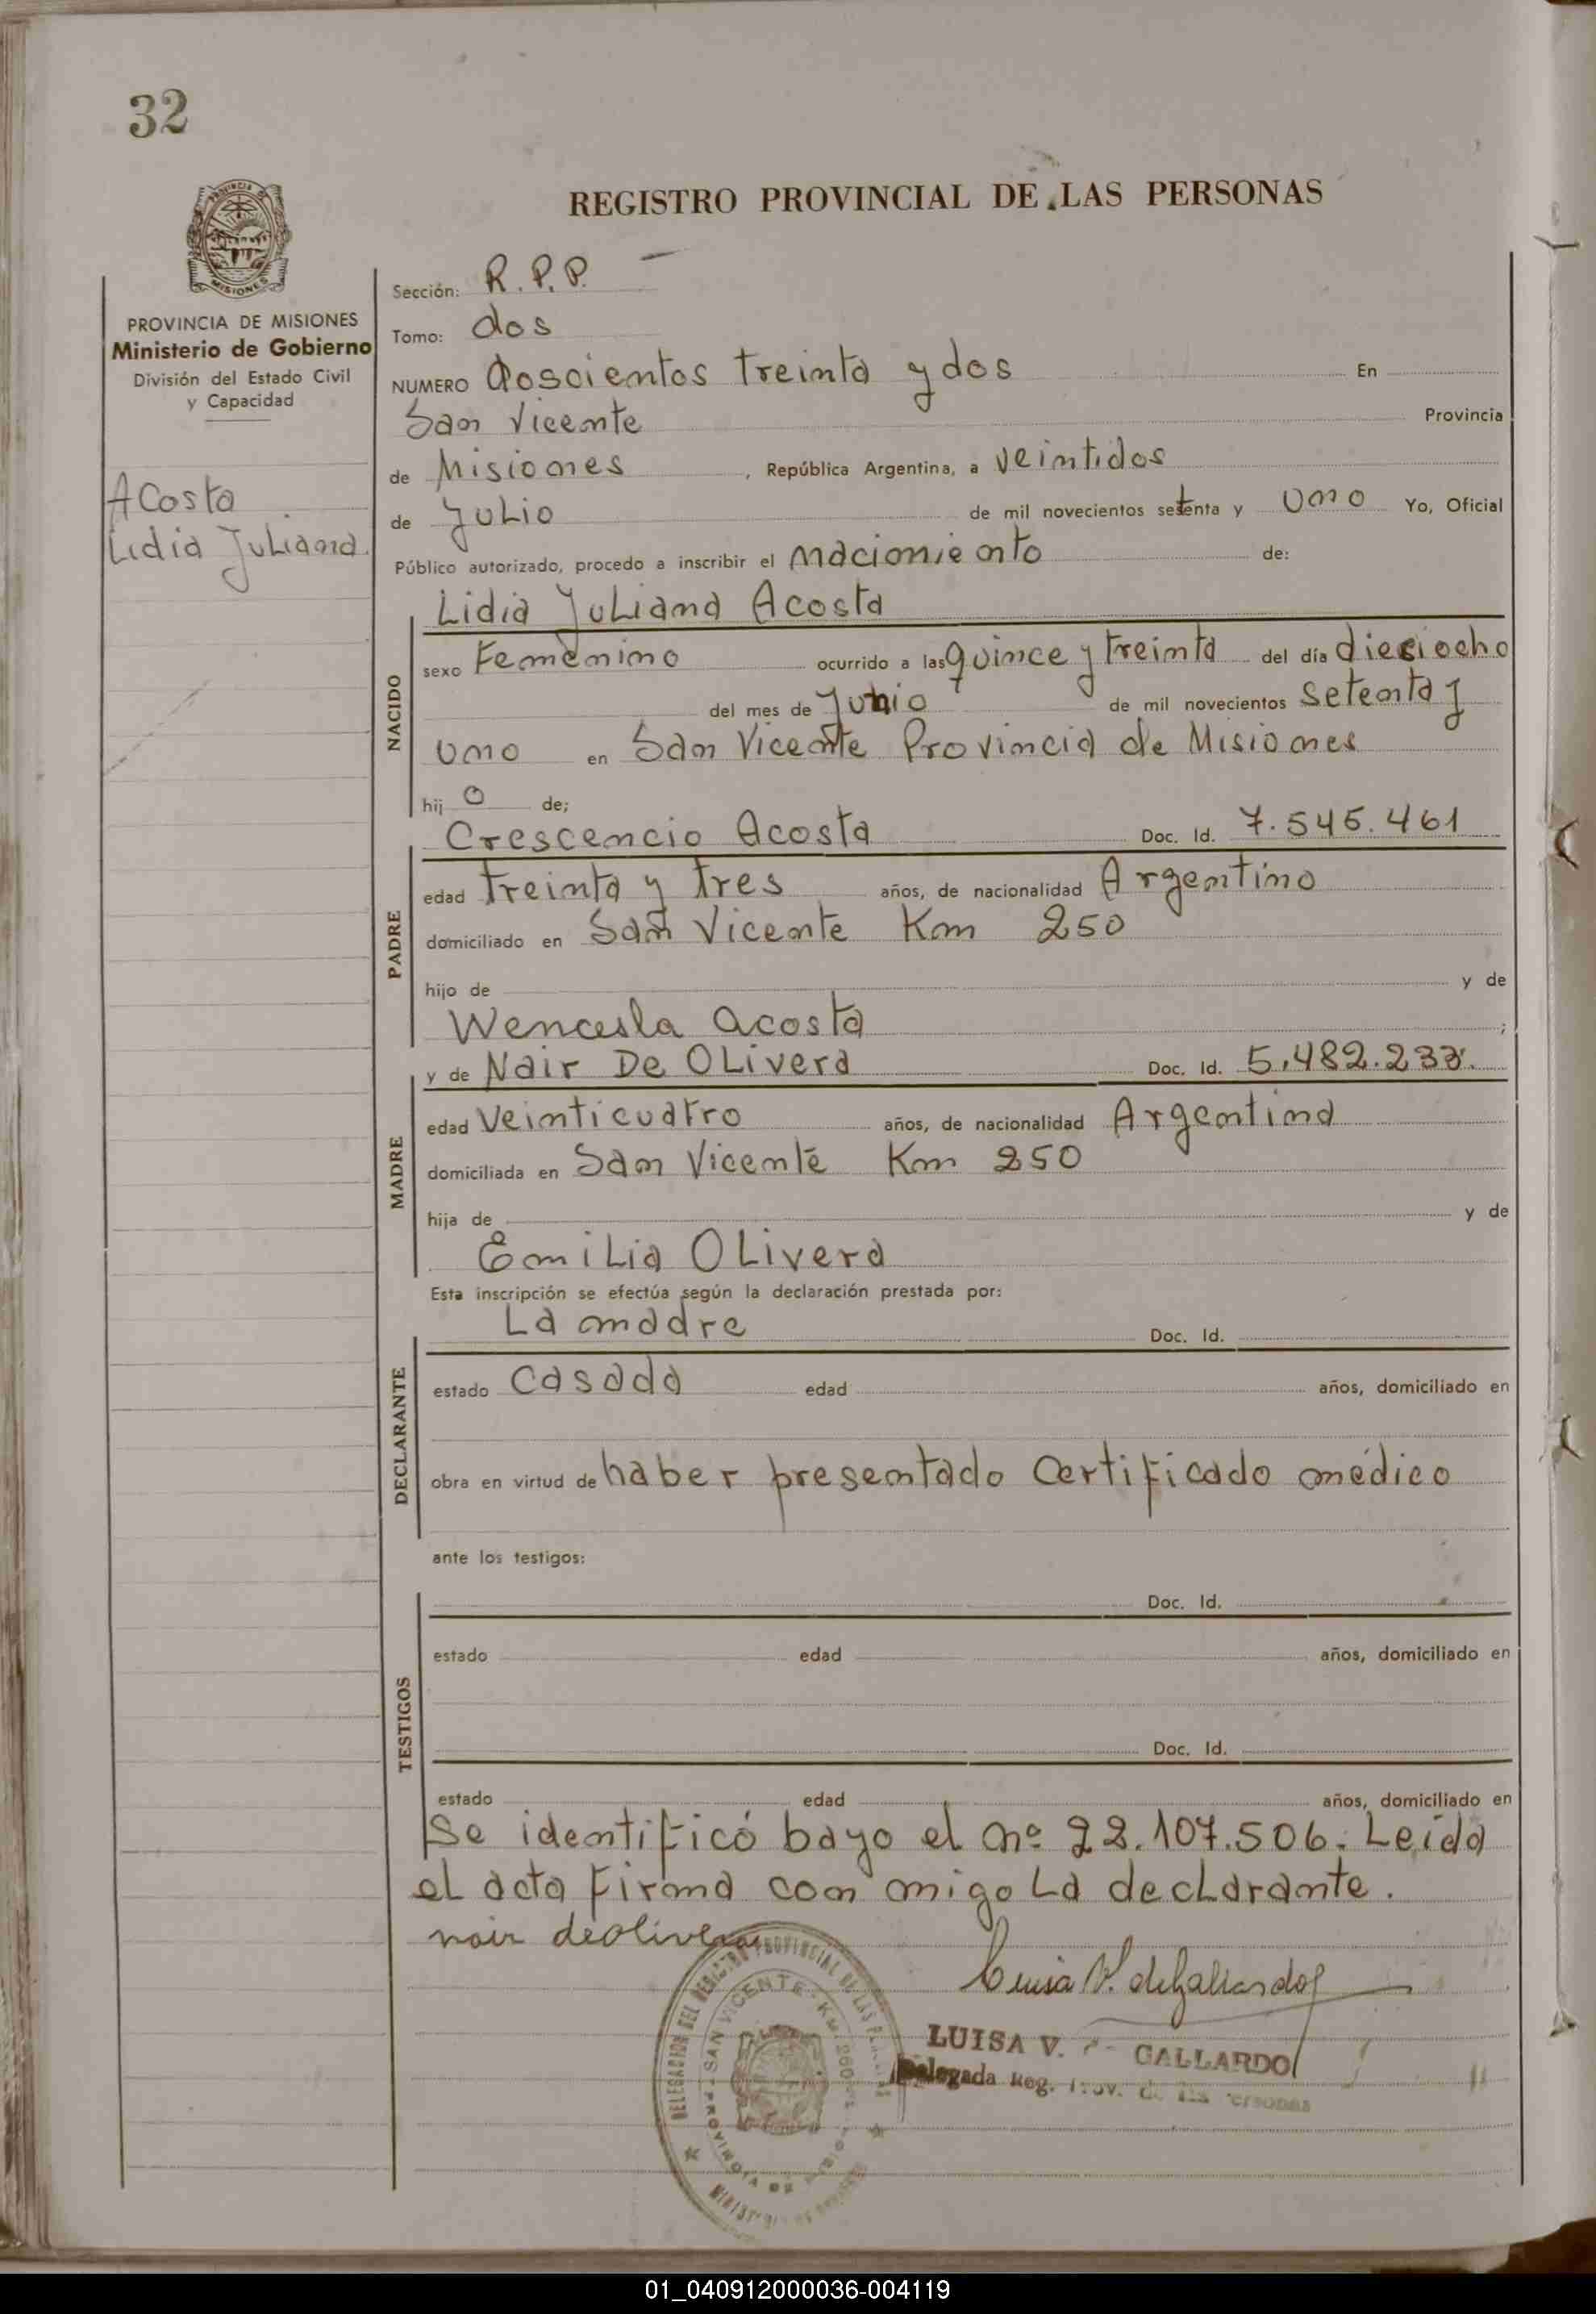 32
REGISTRO PROVINCIAL DE LAS PERSONAS
PROVINCIA
MISIONES
PROVINCIA DE MISIONES
Ministerio de Gobierno
División del Estado Civil
y Capacidad
Acosta
Lidia Juliana.
Sección: R.P.P. —
Tomo: dos
NUMERO Doscientos treinta y dos En
San Vicente Provincia
de Misiones, República Argentina, a veintidos
de Julio de mil novecientos setenta y uno Yo, Oficial
Público autorizado, procedo a inscribir el nacimiento de:
Lidia Juliana Acosta
NACIDO
sexo Femenino ocurrido a las quince y treinta del día dieciocho
del mes de Junio de mil novecientos setenta y
uno en San Vicente Provincia de Misiones
hij o de;
Crescencio Acosta Doc. Id. 7.545.461
PADRE
edad treinta y tres años, de nacionalidad Argentino
domiciliado en San Vicente Km 250
hijo de y de
Wencesla acosta ;
y de Nair De OLivera Doc. Id. 5.482.233.
MADRE
edad Veinticuatro años, de nacionalidad Argentina
domiciliada en San Vicente Km 250
hija de y de
Emilia OLivera
Esta inscripción se efectúa según la declaración prestada por:
La madre Doc. Id.
DECLARANTE
estado casada edad años, domiciliado en
obra en virtud de haber presentado certificado médico
ante los testigos:
Doc. Id.
TESTIGOS
estado edad años, domiciliado en
Doc. Id.
estado edad años, domiciliado en
Se identificó bayo el nº 22.107.506. Leída
el acta firma con migo La decLarante.
nair deolivera
Luisa V. de Gallardo
LUISA V. GALLARDO
Delegada Reg. Prov. de las Personas
DELEGACION DEL REGISTRO PROVINCIAL DE LAS
SAN VICENTE - Km. 260
PROVINCIA DE
01_040912000036-004119